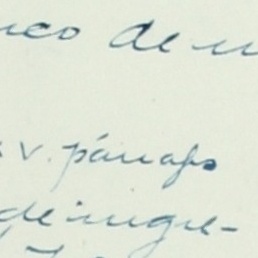 uco de u
v. párrafo
de ingre-